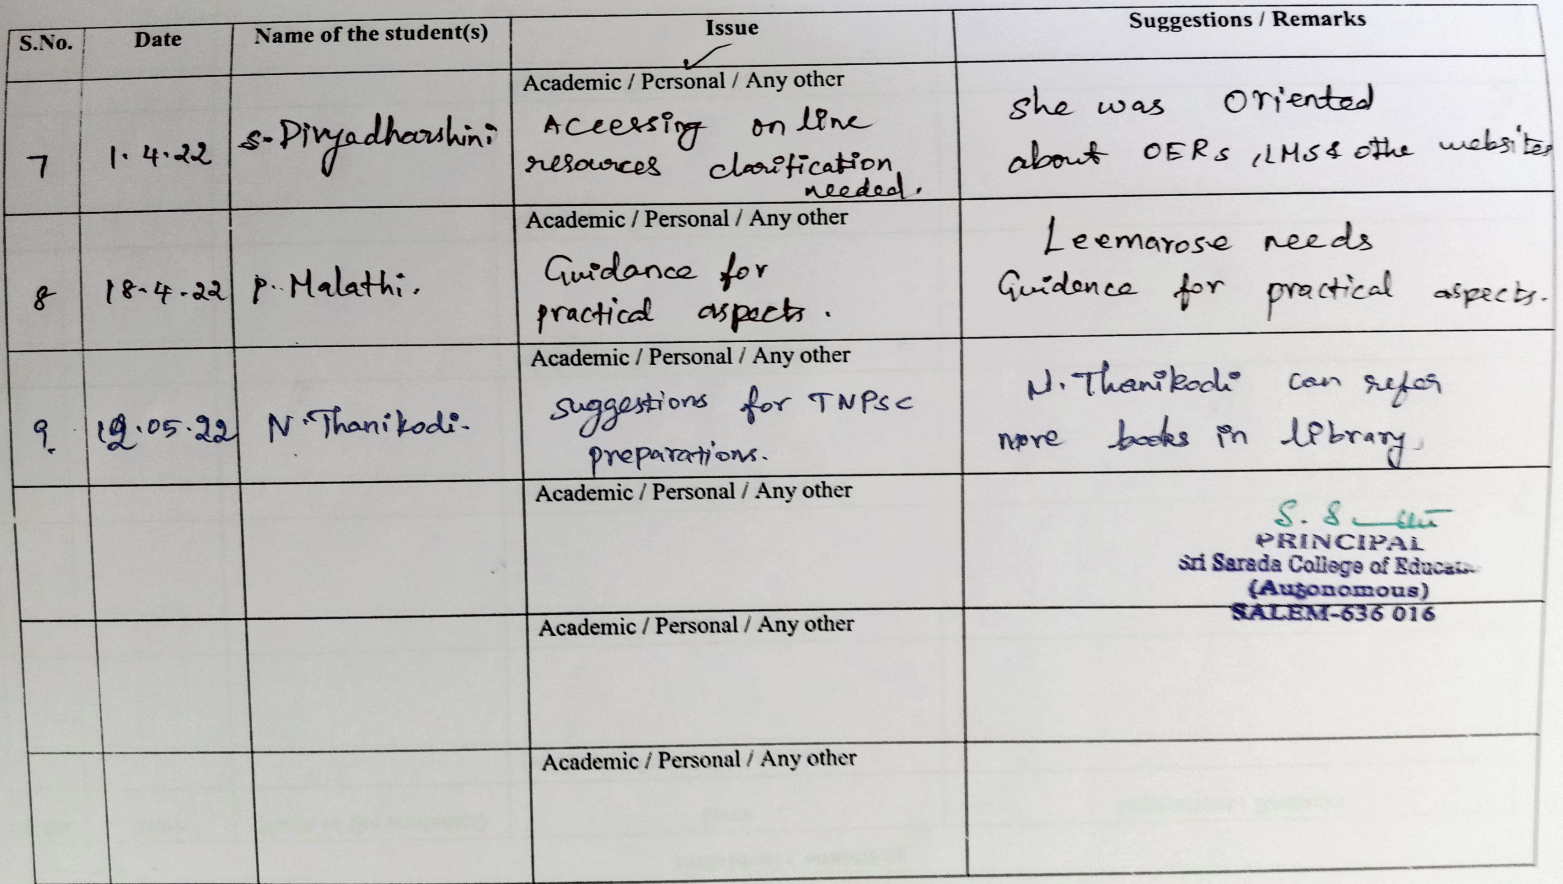 S.No.
Date
Name of the student(s)
Issue
Suggestions / Remarks
7
1.4.22
S. Divyadharshini
Academic / Personal / Any other
Accessing on line
resources clarification
needed.
She was oriented
about OERs, LMS & othe websites
8
18.4.22
P. Malathi.
Academic / Personal / Any other
Guidance for
practical aspects.
Leemarose needs
Guidence for practical aspects.
9.
12.05.22
N. Thanikodi.
Academic / Personal / Any other
suggestions for TNPSC
preparations.
N. Thanikodi can refer
more books in library
Academic / Personal / Any other
PRINCIPAL
Sri Sarada College of Educat
(Autonomous)
SALEM-636 016
Academic / Personal / Any other
Academic / Personal / Any other